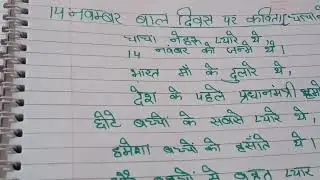 14 नवम्बर बाल दिवस पर कविता
चाचा नेहरू प्यारे थे,
14 नवंबर को जन्मे थे।
भारत माँ के दुलारे थे,
देश के पहले प्रधानमंत्री
छोटे बच्चों के सबसे प्यारे थे,
हमेशा बच्चों को हँसाते थे।
बच्चों से बहुत प्यार